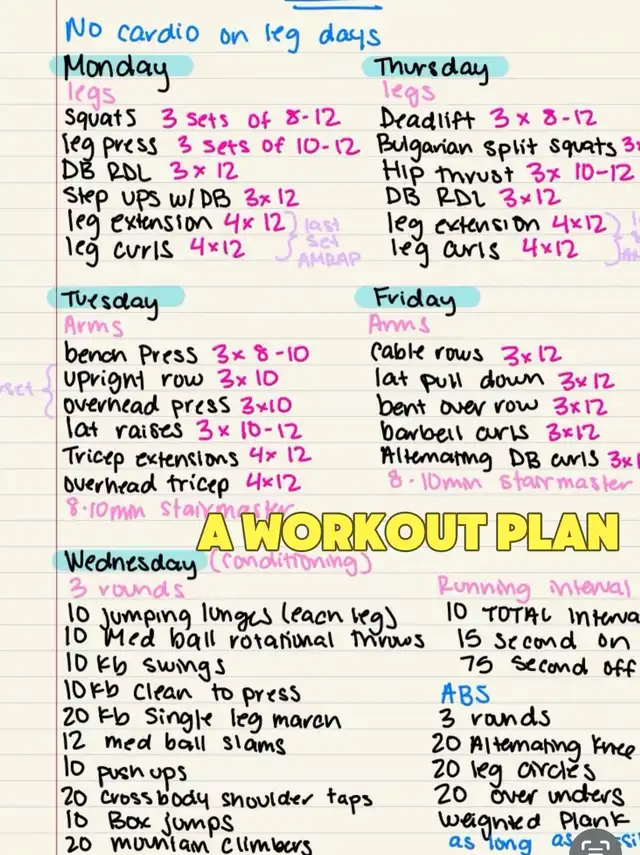 No cardio on leg days
Monday
legs
Squats 3 sets of 8-12
leg press 3 sets of 10-12
DB RDL 3x12
Step ups w/DB 3x12
leg extension 4x12
leg curls 4x12
last
set
AMRAP
Thursday
legs
Deadlift 3x8-12
Bulgarian split squats
Hip thrust 3x10-12
DB RDL 3x12
leg extension 4x12
leg curls 4x12
Tuesday
Arms
bench Press 3x8-10
upright row 3x10
overhead press 3x10
lat raises 3x10-12
Tricep extensions 4x12
overhead tricep 4x12
8-10min Stairmaster
Friday
Arms
cable rows 3x12
lat pull down 3x12
bent over row 3x12
barbell curls 3x12
Alternating DB curls
8-10min Stairmaster
A WORKOUT PLAN
Wednesday (conditioning)
3 rounds
10 jumping lunges (each leg)
10 Med ball rotational throws
10 Kb swings
10 Kb Clean to press
20 Kb Single leg march
12 med ball slams
10 push ups
20 crossbody shoulder taps
10 Box jumps
20 mountain climbers
Running interval
10 TOTAL
15 second on
75 second off
ABS
3 rounds
20 Alternating knee
20 leg circles
20 over unders
weighted Plank
as long as